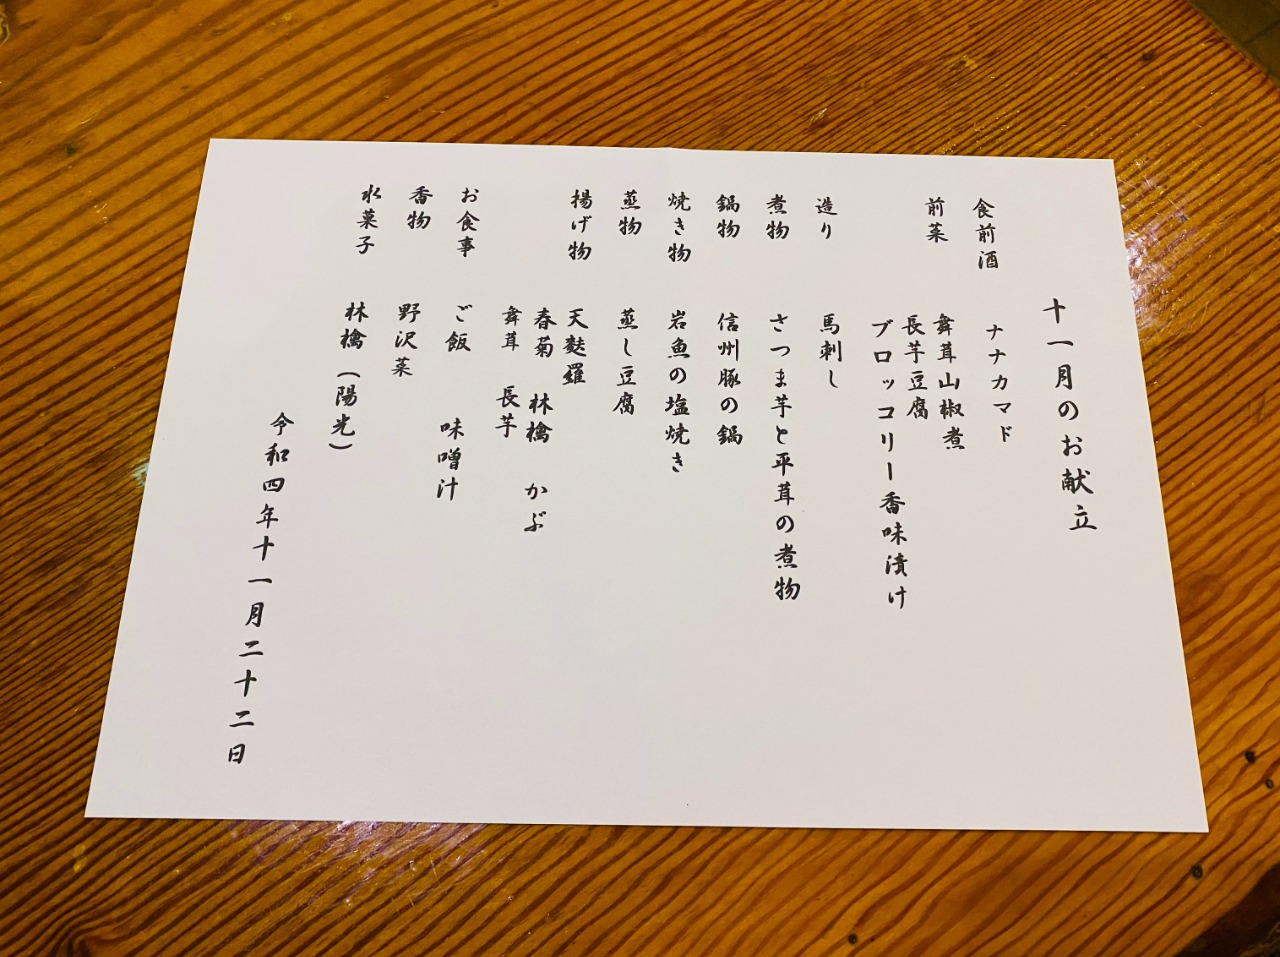 十一月のお献立
食前酒 ナナカマド
前菜 舞茸山椒煮
長芋豆腐
ブロッコリー香味漬け
造り 馬刺し
煮物 さつま芋と平茸の煮物
鍋物 信州豚の鍋
焼き物 岩魚の塩焼き
蒸物 蒸し豆腐
揚げ物 天麩羅
春菊 林檎 かぶ
舞茸 長芋
お食事 ご飯 味噌汁
香物 野沢菜
水菓子 林檎（陽光）
令和四年十一月二十二日